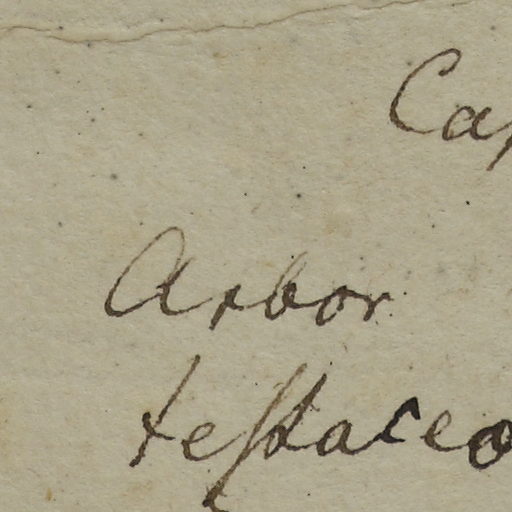 Cap
Arbor
teſtaceo